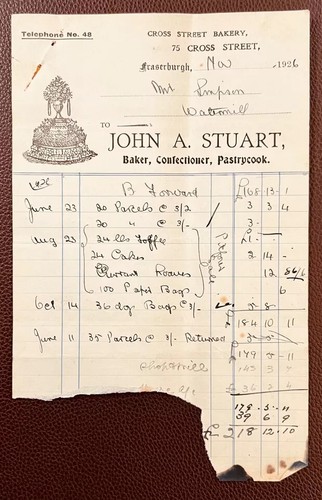 Telephone No. 48
CROSS STREET BAKERY,
75 CROSS STREET,
Fraserburgh, Nov 1926
Simpson
Watermill
TO
JOHN A. STUART,
Baker, Confectioner, Pastrycook.
1926 B Forward £168-13-1
June 23 20 Parcels @ 3/2 3 3 4
20 " @ 3/- 3-
Aug 23 24 lbs Toffee
24 Cakes 2 14 -
Currant Loaves 12
100 Paper Bags 6
Oct 14 36 doz Bags @ 3/- 5 8-
184 10 11
June 11 35 Parcels @ 3/- Returned 5-5-
179 5-11
179-5-11
39 6 9
£218 12-10